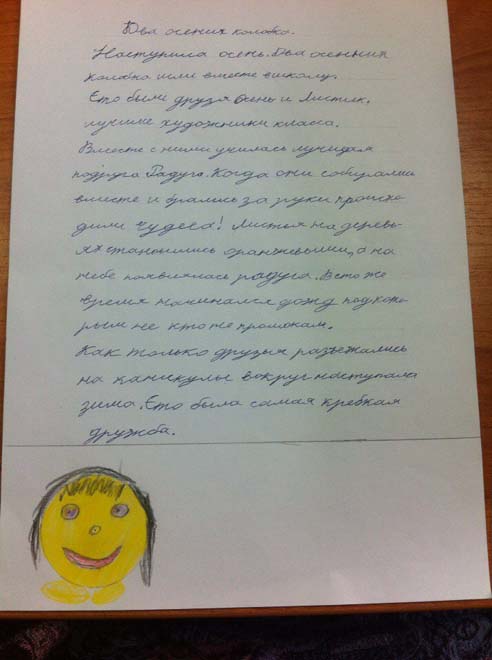 Два осених колобка.
Наступила осень. Два осенних
колобка шли вместе в школу.
Ето были друзя Осень и Листик,
лучшие художники класса.
Вместе с ними училась лучшая
подруга Радуга. Когда они собирались
вместе и брались за руки происхо-
дили чудеса! Листья на деревь-
ях становились оранжевыми, а на
небе появлялась радуга. В то же
время начинался дожд под кото-
рым не кто не промокал.
Как только друзья разъежались
на каникулы вокруг наступала
зима. Ето была самая крепкая
дружба.